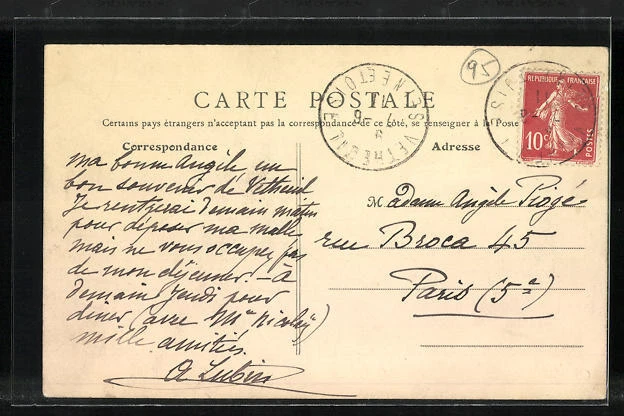 95
CARTE POSTALE
Certains pays étrangers n'acceptant pas la correspondance de ce côté, se renseigner à la Poste
Correspondance
Adresse
RÉPUBLIQUE FRANÇAISE
10c
POSTES
VETHEUIL
SEINE ET OISE
ma bonne Angèle un
bon souvenir de Vetheuil
Je rentrerai demain matin
pour déposer ma malle
mais ne vous occupez pas
de mon déjeuner. - à
demain jeudi pour
diner (avec Mme Nicolaÿ)
mille amitiés.
A Lubin
Madame Angèle Piogé
rue Broca 45
Paris (5e)